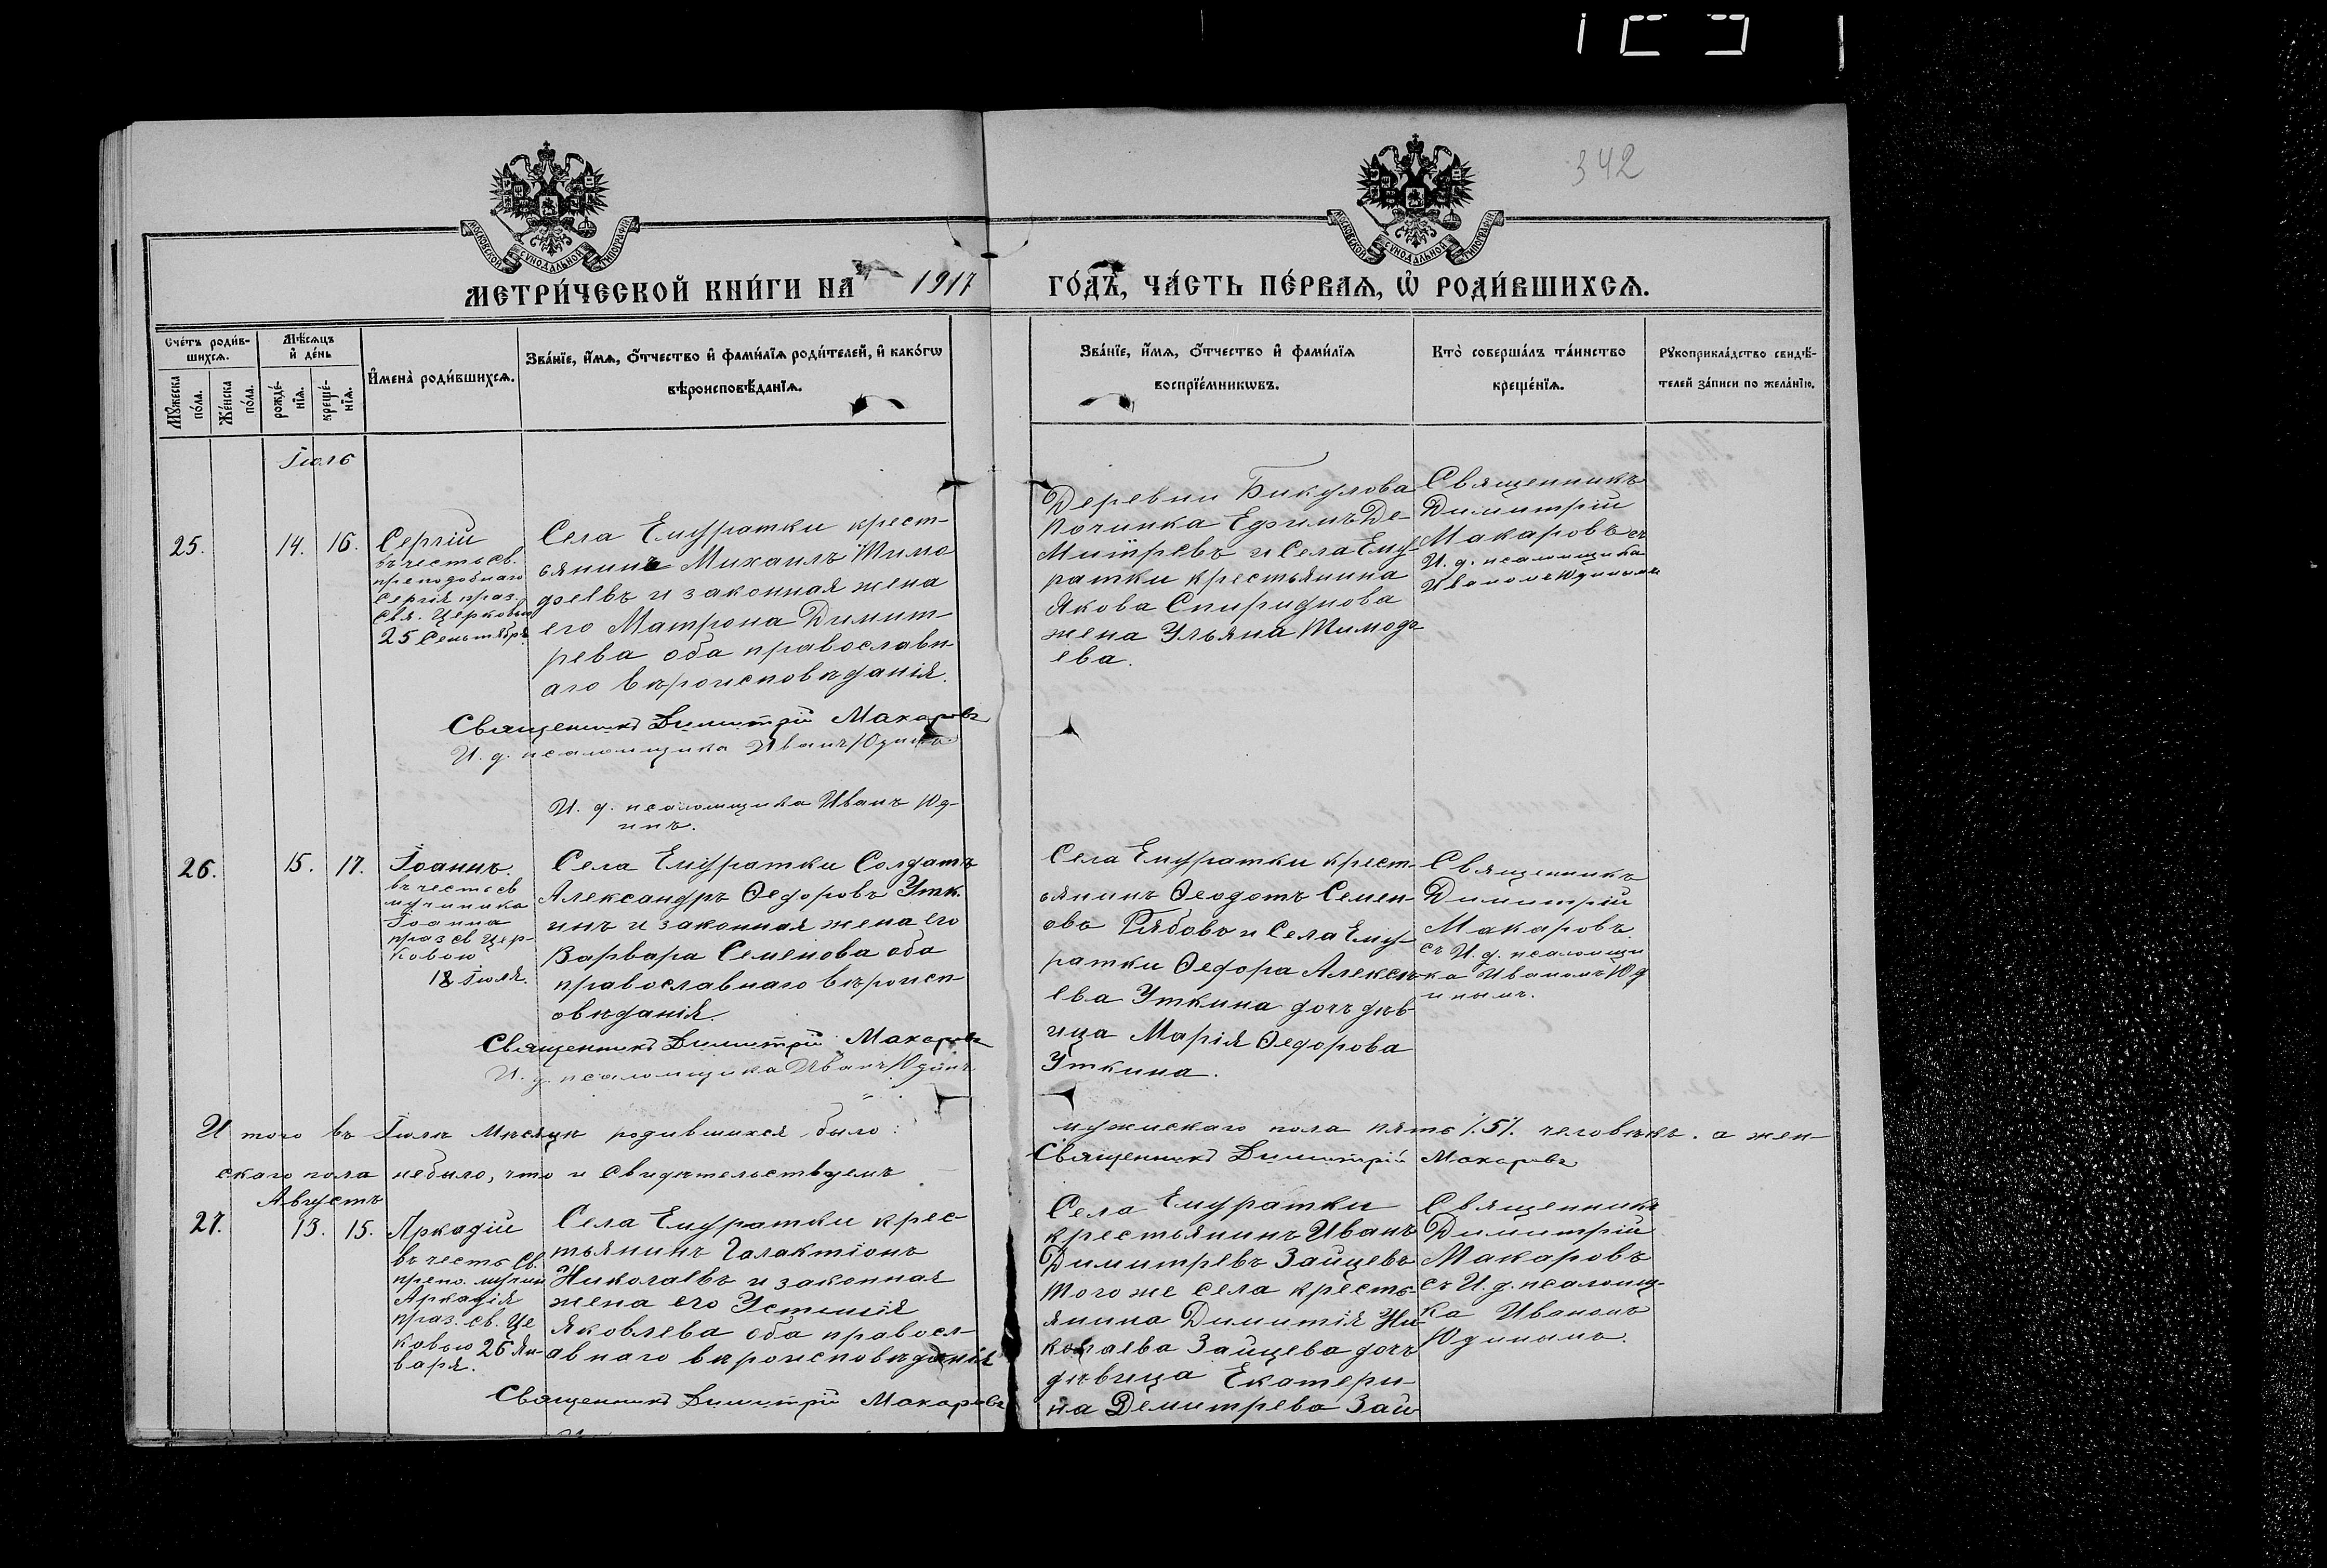 342
МОСКОВСКОЙ СУНОДАЛЬНОЙ ТИПОГРАФІИ
МОСКОВСКОЙ СУНОДАЛЬНОЙ ТИПОГРАФІИ
МЕТРИ́ЧЕСКОЙ КНИ́ГИ НА 1917 ГО́ДЪ, ЧА́СТЬ ПЕ́РВАѦ, Ѡ҆ РОДИ́ВШИХСѦ.
Сче́тъ роди́в-
шихсѧ.
Мꙋ́жеска
по́ла.
Же́нска
по́ла.
Мѣ́сѧцъ
и҆ де́нь
рожде́-
нїѧ.
креще́-
нїѧ.
И҆мена̀ роди́вшихсѧ.
Зва́нїе, и҆́мѧ, ѻ҆́тчество и҆ фами́лїѧ роди́телей, и҆ како́гѡ
вѣроисповѣ́данїѧ.
Зва́нїе, и҆́мѧ, ѻ҆́тчество и҆ фами́лїѧ
воспрїе́мникѡвъ.
Кто̀ соверша́лъ та́инство
креще́нїѧ.
Рꙋкоприкла́дство свидѣ́-
телей за́писи по жела́нїю.
Іюль
25.
14.
16.
Сергій
въ честь св.
преподобнаго
Сергія праз.
Свя. Церковью
25 Сентября
Села Емуратки крест-
ьянинъ Михаилъ Тимо
феевъ и законная жена
его Матрона Димит-
рева оба православн
аго вѣроисповѣданія.
Священникъ Димитрій Макаровъ
И. д. псаломщика Иванъ Юдинъ
И. д. псаломщика Иванъ Юд-
инъ.
Деревни Бикулова
Починка Ефимъ Де-
Митревъ и Села Ему-
ратки крестьянина
Якова Спиридонова
жена Ульяна Тимофе
ева.
Священникъ
Димитрій
Макаровъ съ
И. д. псаломщика
Иваномъ Юдинымъ
26.
15.
17.
Іоаннъ.
въ честь св
мученика
Іоанна
праз св Цер-
ковью
18 Іюля.
Села Емуратки Солдатъ
Александръ Ѳедоровъ Утк.
инъ и законная жена его
Варвара Семенова оба
православнаго вѣроисп-
овѣданія.
Священникъ Димитрій Макаровъ
И. д. псаломщика Иванъ Юдинъ.
Села Емуратки крест-
ьянинъ Ѳеодотъ Семен-
овъ Рябовъ и Села Ему-
ратки Ѳедора Алексѣ-
ева Уткина дочъ дѣв
ица Марія Ѳедорова
Уткина.
Священникъ
Димитрій
Макаровъ.
съ И. д. псаломщи
ка Иваномъ Юд
инымъ.
И того въ Іюлѣ мѣсяцѣ родившихся было: мужискаго пола пять /.5/. человѣкъ. а жен-
скаго пола небыло, что и свидѣтельствуемъ Священникъ Димитрій Макаровъ
Августъ
27.
13.
15.
Аркадій
въ честь Св.
препо.
Аркадія
праз. св. Це
ковью 26 Ян-
варя.
Села Емуратки крес-
тьянинъ Галактіонъ
Николаевъ и законная
жена его Устинія
Яковлева оба правосл-
авнаго вѣроисповѣданія
Священникъ Димитрій Макаровъ
Села Емуратки
крестьянинъ Иванъ
Димитревъ Зайцевъ
того же села кресть-
янина Димитія Ни-
колаева Зайцева дочъ
дѣвица Екатери-
на Демитрева Зай
Священникъ
Димитрій
Макаровъ
съ И. д. псаломщ-
ка Иваномъ
Юдинымъ.